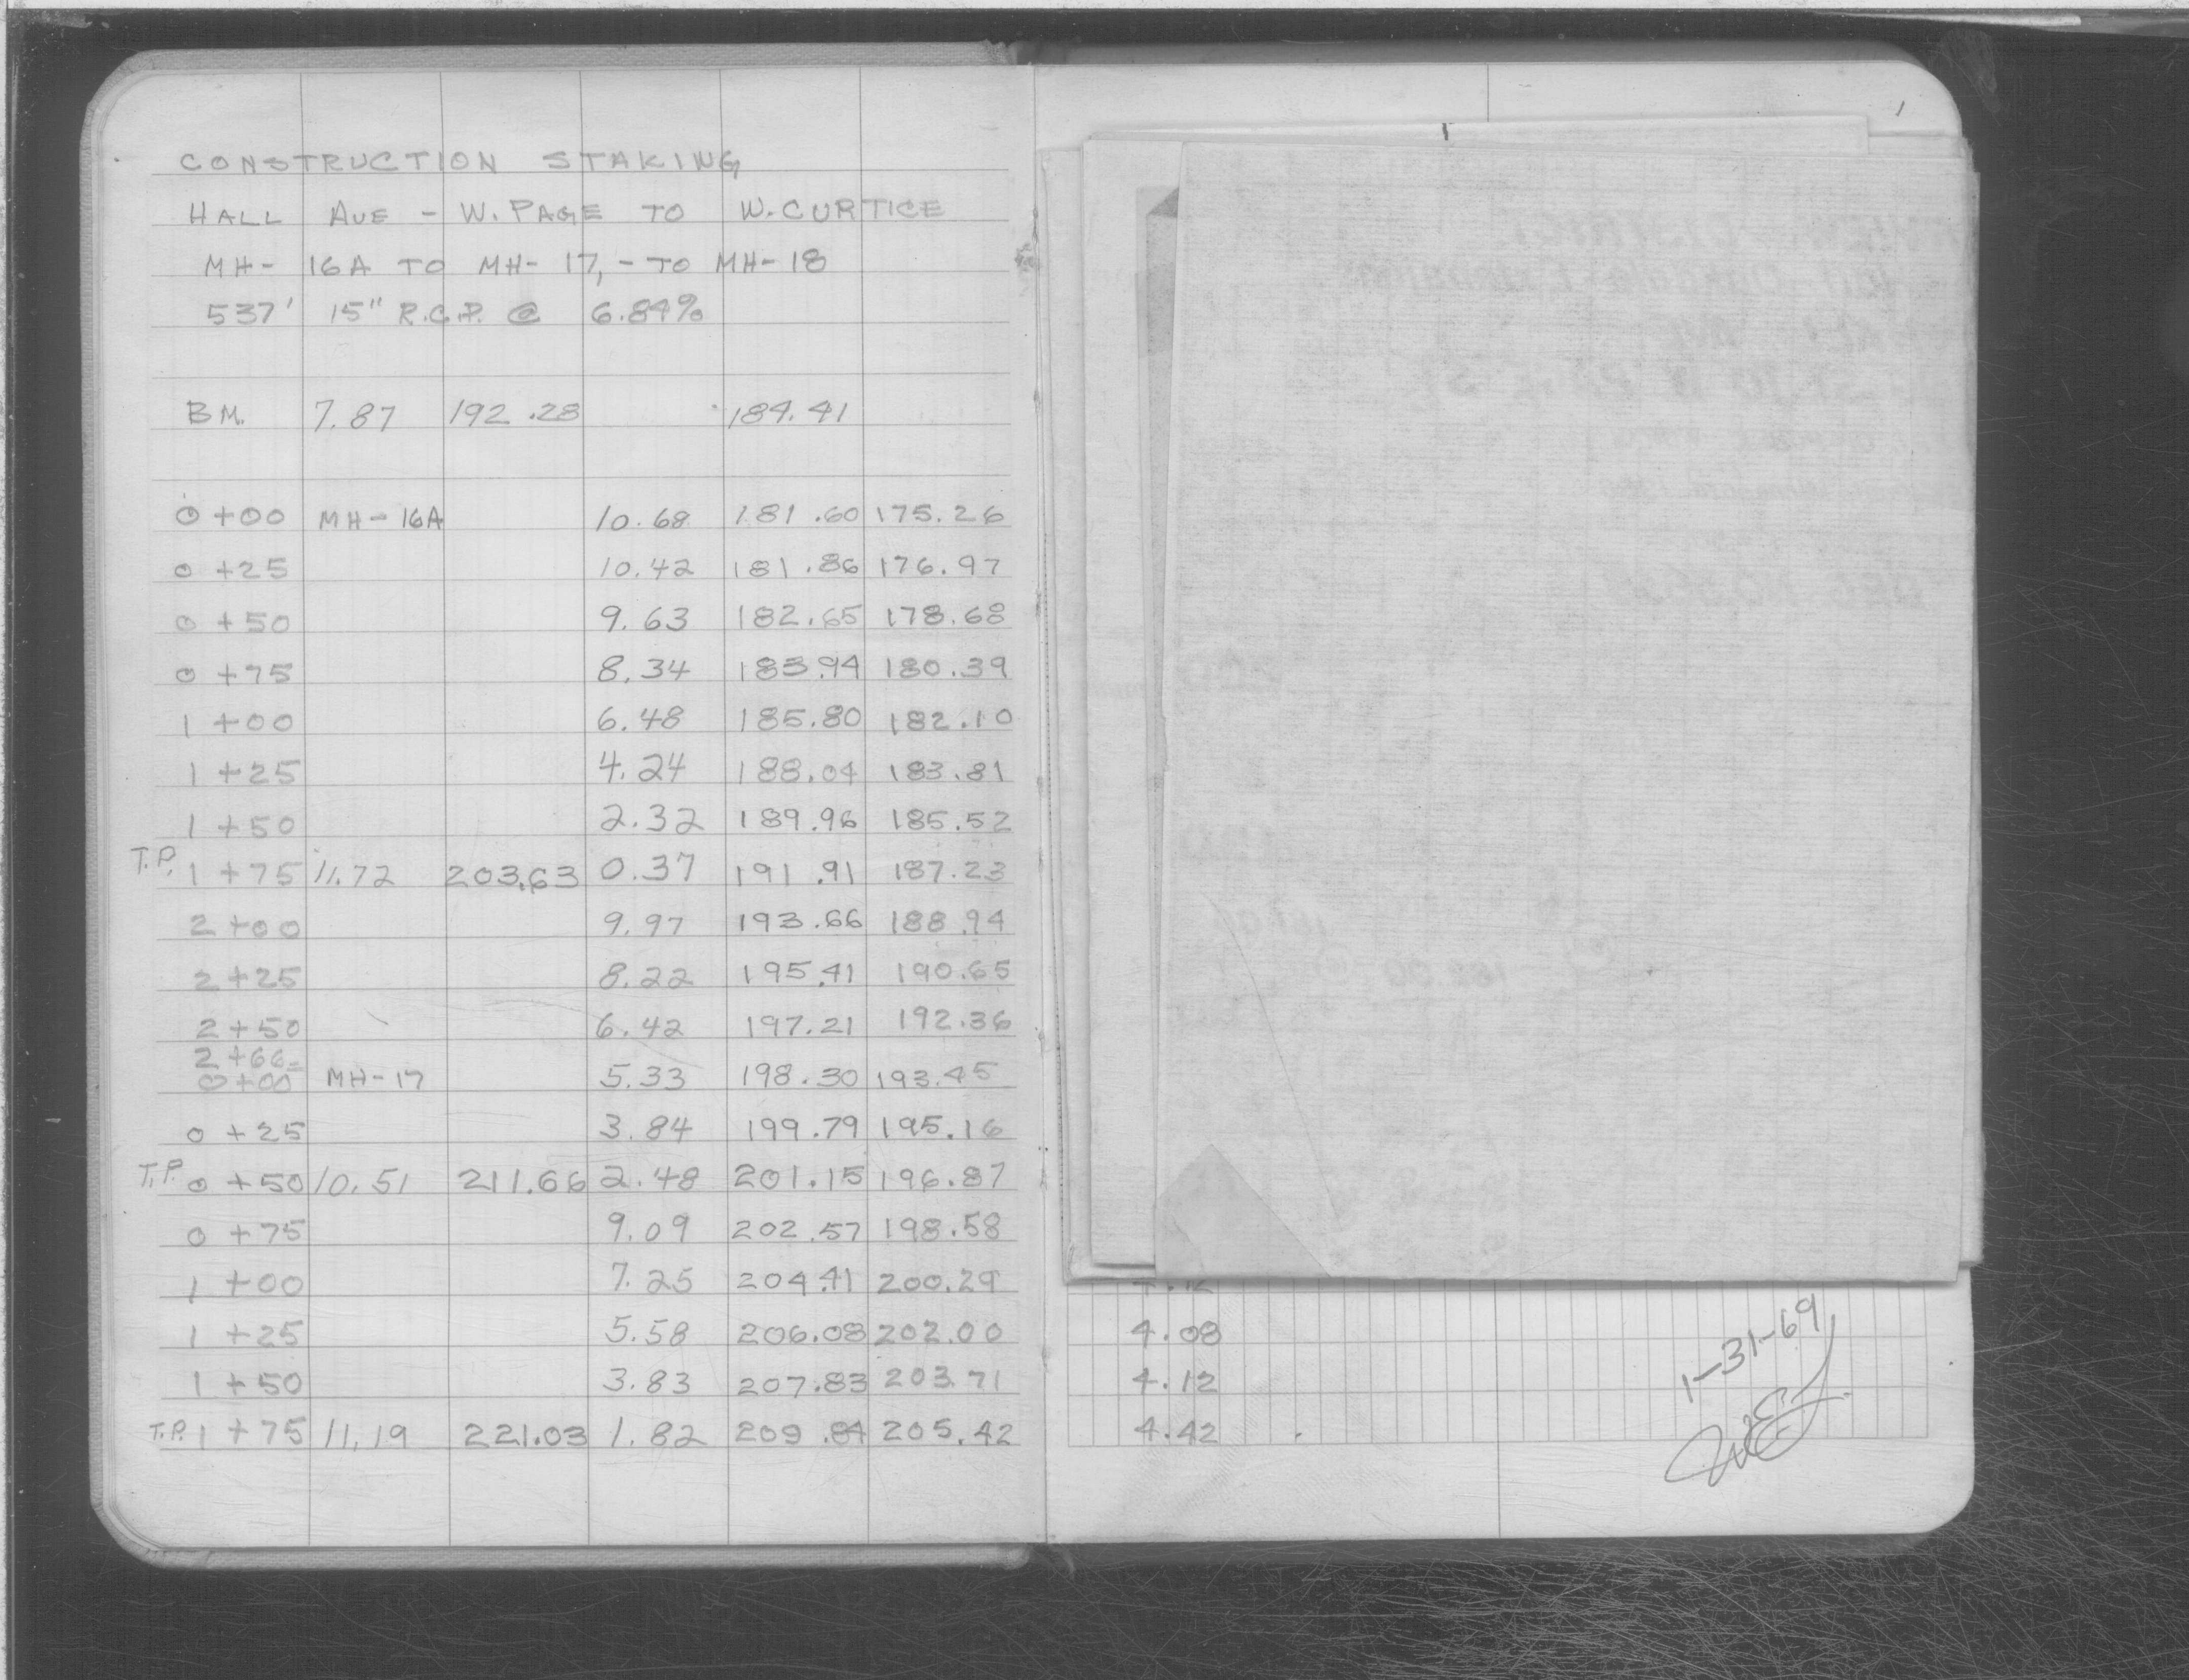 CONSTRUCTION STAKING
HALL AVE - W. PAGE TO W. CURTICE
MH- 16A TO MH- 17, - TO MH- 18
537' 15" R.C.P. @ 6.84%
B M. 7.87 192.28 184.41
0+00 MH-16A 10.68 181.60 175.26
0+25 10.42 181.86 176.97
0+50 9.63 182.65 178.68
0+75 8.34 183.94 180.39
1+00 6.48 185.80 182.10
1+25 4.24 188.04 183.81
1+50 2.32 189.96 185.52
T.P. 1+75 11.72 203.63 0.37 191.91 187.23
2+00 9.97 193.66 188.94
2+25 8.22 195.41 190.65
2+50 6.42 197.21 192.36
2+66=
0+00 MH-17 5.33 198.30 193.45
0+25 3.84 199.79 195.16
T.P. 0+50 10.51 211.66 2.48 201.15 196.87
0+75 9.09 202.57 198.58
1+00 7.25 204.41 200.29
1+25 5.58 206.08 202.00 4.08
1+50 3.83 207.83 203.71 4.12
T.P. 1+75 11.19 221.03 1.82 209.84 205.42 4.42
1-31-69